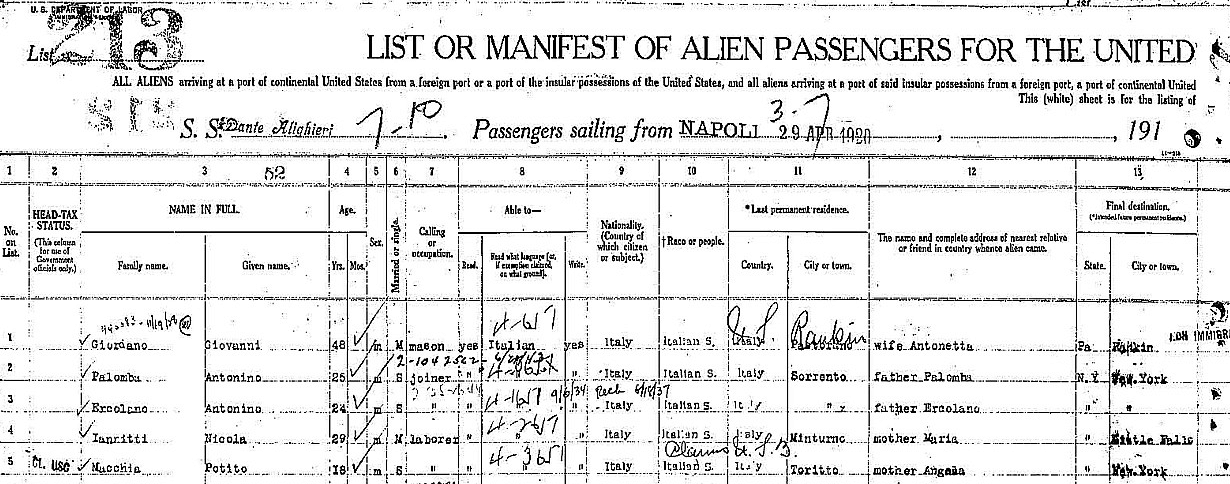 U. S. DEPARTMENT OF LABOR
213
List
LIST OR MANIFEST OF ALIEN PASSENGERS FOR THE UNITED
ALL ALIENS arriving at a port of continental United States from a foreign port or a port of the insular possessions of the United States, and all aliens arriving at a port of said insular possessions from a foreign port, a port of continental United
This (white) sheet is for the listing of
S. S. Dante Alighieri 7-10 Passengers sailing from NAPOLI 29 APR 1920 3-7 , , 191
1 2 3 52 4 5 6 7 8 9 10 11 12 13
No. on List.
HEAD-TAX STATUS. (This column for use of Government officials only.)
NAME IN FULL.
Family name. Given name.
Age.
Yrs. Mos.
Sex.
Married or single.
Calling or occupation.
Able to—
Read. Read what language (or, if exemption claimed, on what ground). Write.
Nationality. (Country of which citizen or subject.)
†Race or people.
*Last permanent residence.
Country. City or town.
The name and complete address of nearest relative or friend in country whence alien came.
Final destination. (*Intended future permanent residence.)
State. City or town.
4-617 U.S. Rankin
1 Giordano Giovanni 48 m M mason yes Italian yes Italy Italian S. Italy wife Antonetta Pa Rankin
2 Palomba Antonino 25 m S joiner " " Italy Italian S. Italy Sorrento father Palomba N.Y New York
4-1617 9/6/34
3 Ercolano Antonino 24 m S " " " " Italy Italian S. Italy " father Ercolano " "
4-2617
4 Iannitti Nicola 29 m M laborer " " " Italy Italian S. Italy Minturno mother Maria " Little Falls
4-3651 Claims U.S.B.
5 Ct. USC Macchia Potito 18 m S " " " " Italy Italian S. Italy Toritto mother Angela " New York